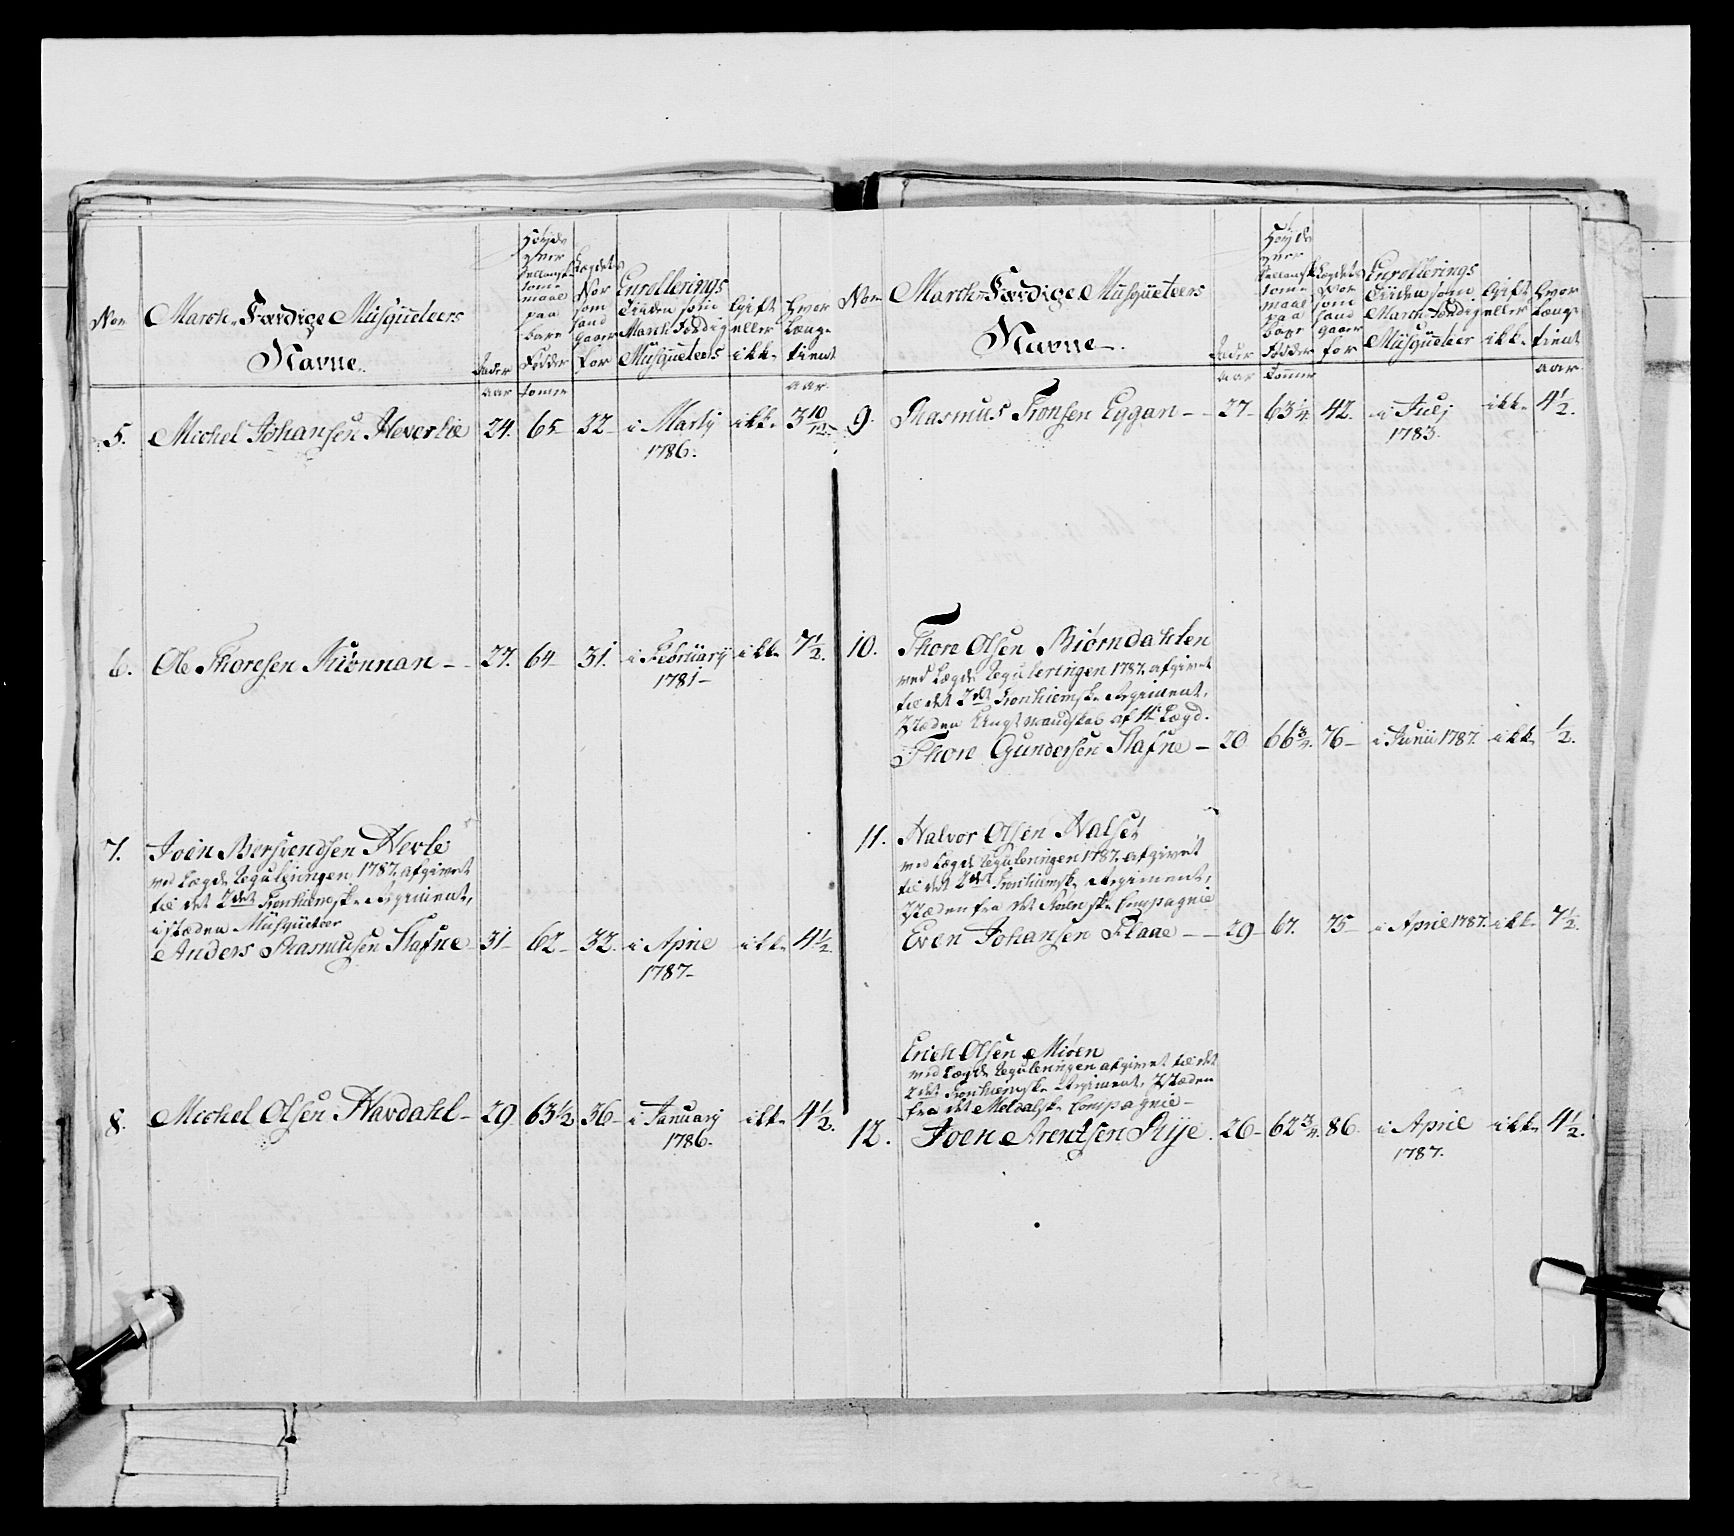 No
March-Færdige Musqueteers
Navne.
Alder
aar
Høyde
over
som
maal
paa
bare
Fødder
tomer
Lægdets
Nor
som
hand
gaaer
for
Enrollerings
Tiiden som
March Færdig
Musqueteers
Gift
eller
ikke
Hvor
længe
tient
aar.
5. Michel Johansen Heverlie 24. 65 32 i Martij ikke 3 10/12
1786.
6. Ole Thoresen Kiønnan 27. 64 31. i Februarij ikke 7 1/2.
1781
7. Joen Bersvendsen Hevle
ved Lægds Reguleringen 1787 afgivet
til det 2det Tronhiemske Regiment,
i stæden Musqueteer
Anders Rasmusen Stafne 31 62 32. i Aprie ikke 4 1/2.
1787
8. Michel Olsen Havdahl 29 63 1/2 36 i Januarij ikke 4 1/2.
1786.
Nor
March-Færdige Musqueteers
Navne.
Alder
aar
Høyde
over
som
maal
paa
bare
Fødder
Tommer
Lægdets
Nor
som
hand
gaaer
for
Enrollerings
Tiiden som
March Færdig
Musqueteer
Gift
eller
ikke
Hvor
længe
tient
aar
9. Rasmus Tronsen Eggan 27 63 1/4. 42. i Julj ikke 4 1/2.
1783.
10. Thore Olsen Biørndahlen
ved Lægds Reguleringen 1787 afgivet
til det 2det Tronhiemske Regiment,
I stæden Ungt Mandskab af Lægd.
Thore Gundersen Stafne 20 66 3/4. 76 i Junii 1787. ikke 1/2.
11. Halvor Olsen Halset
ved Lægds Reguleringen 1787. afgivet
til det 2det Tronhiemske Regiment,
I stæden fra det Compagnie
Even Johansen Flaae 29 67. 75 i Aprie 1787. ikke 7 1/2.
Erich Olsen Mioen
ved Lægds Reguleringen afgivet til det
2det Tronhiemske Regiment, I stæden
fra det Meldalske Compagnie
12. Joen Arentsen Rye. 26 62 3/4. 86 i Aprie ikke 4 1/2.
1787.